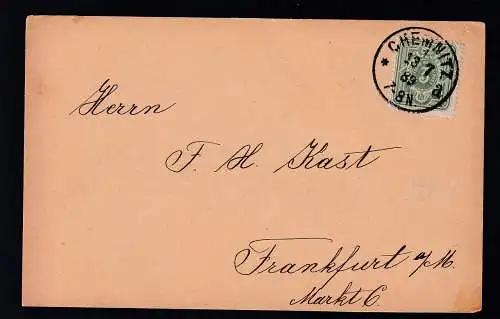 * CHEMNITZ
13 7
89
7-8N
Herrn
F. H. Kast
Frankfurt a/M.
Markt 6.